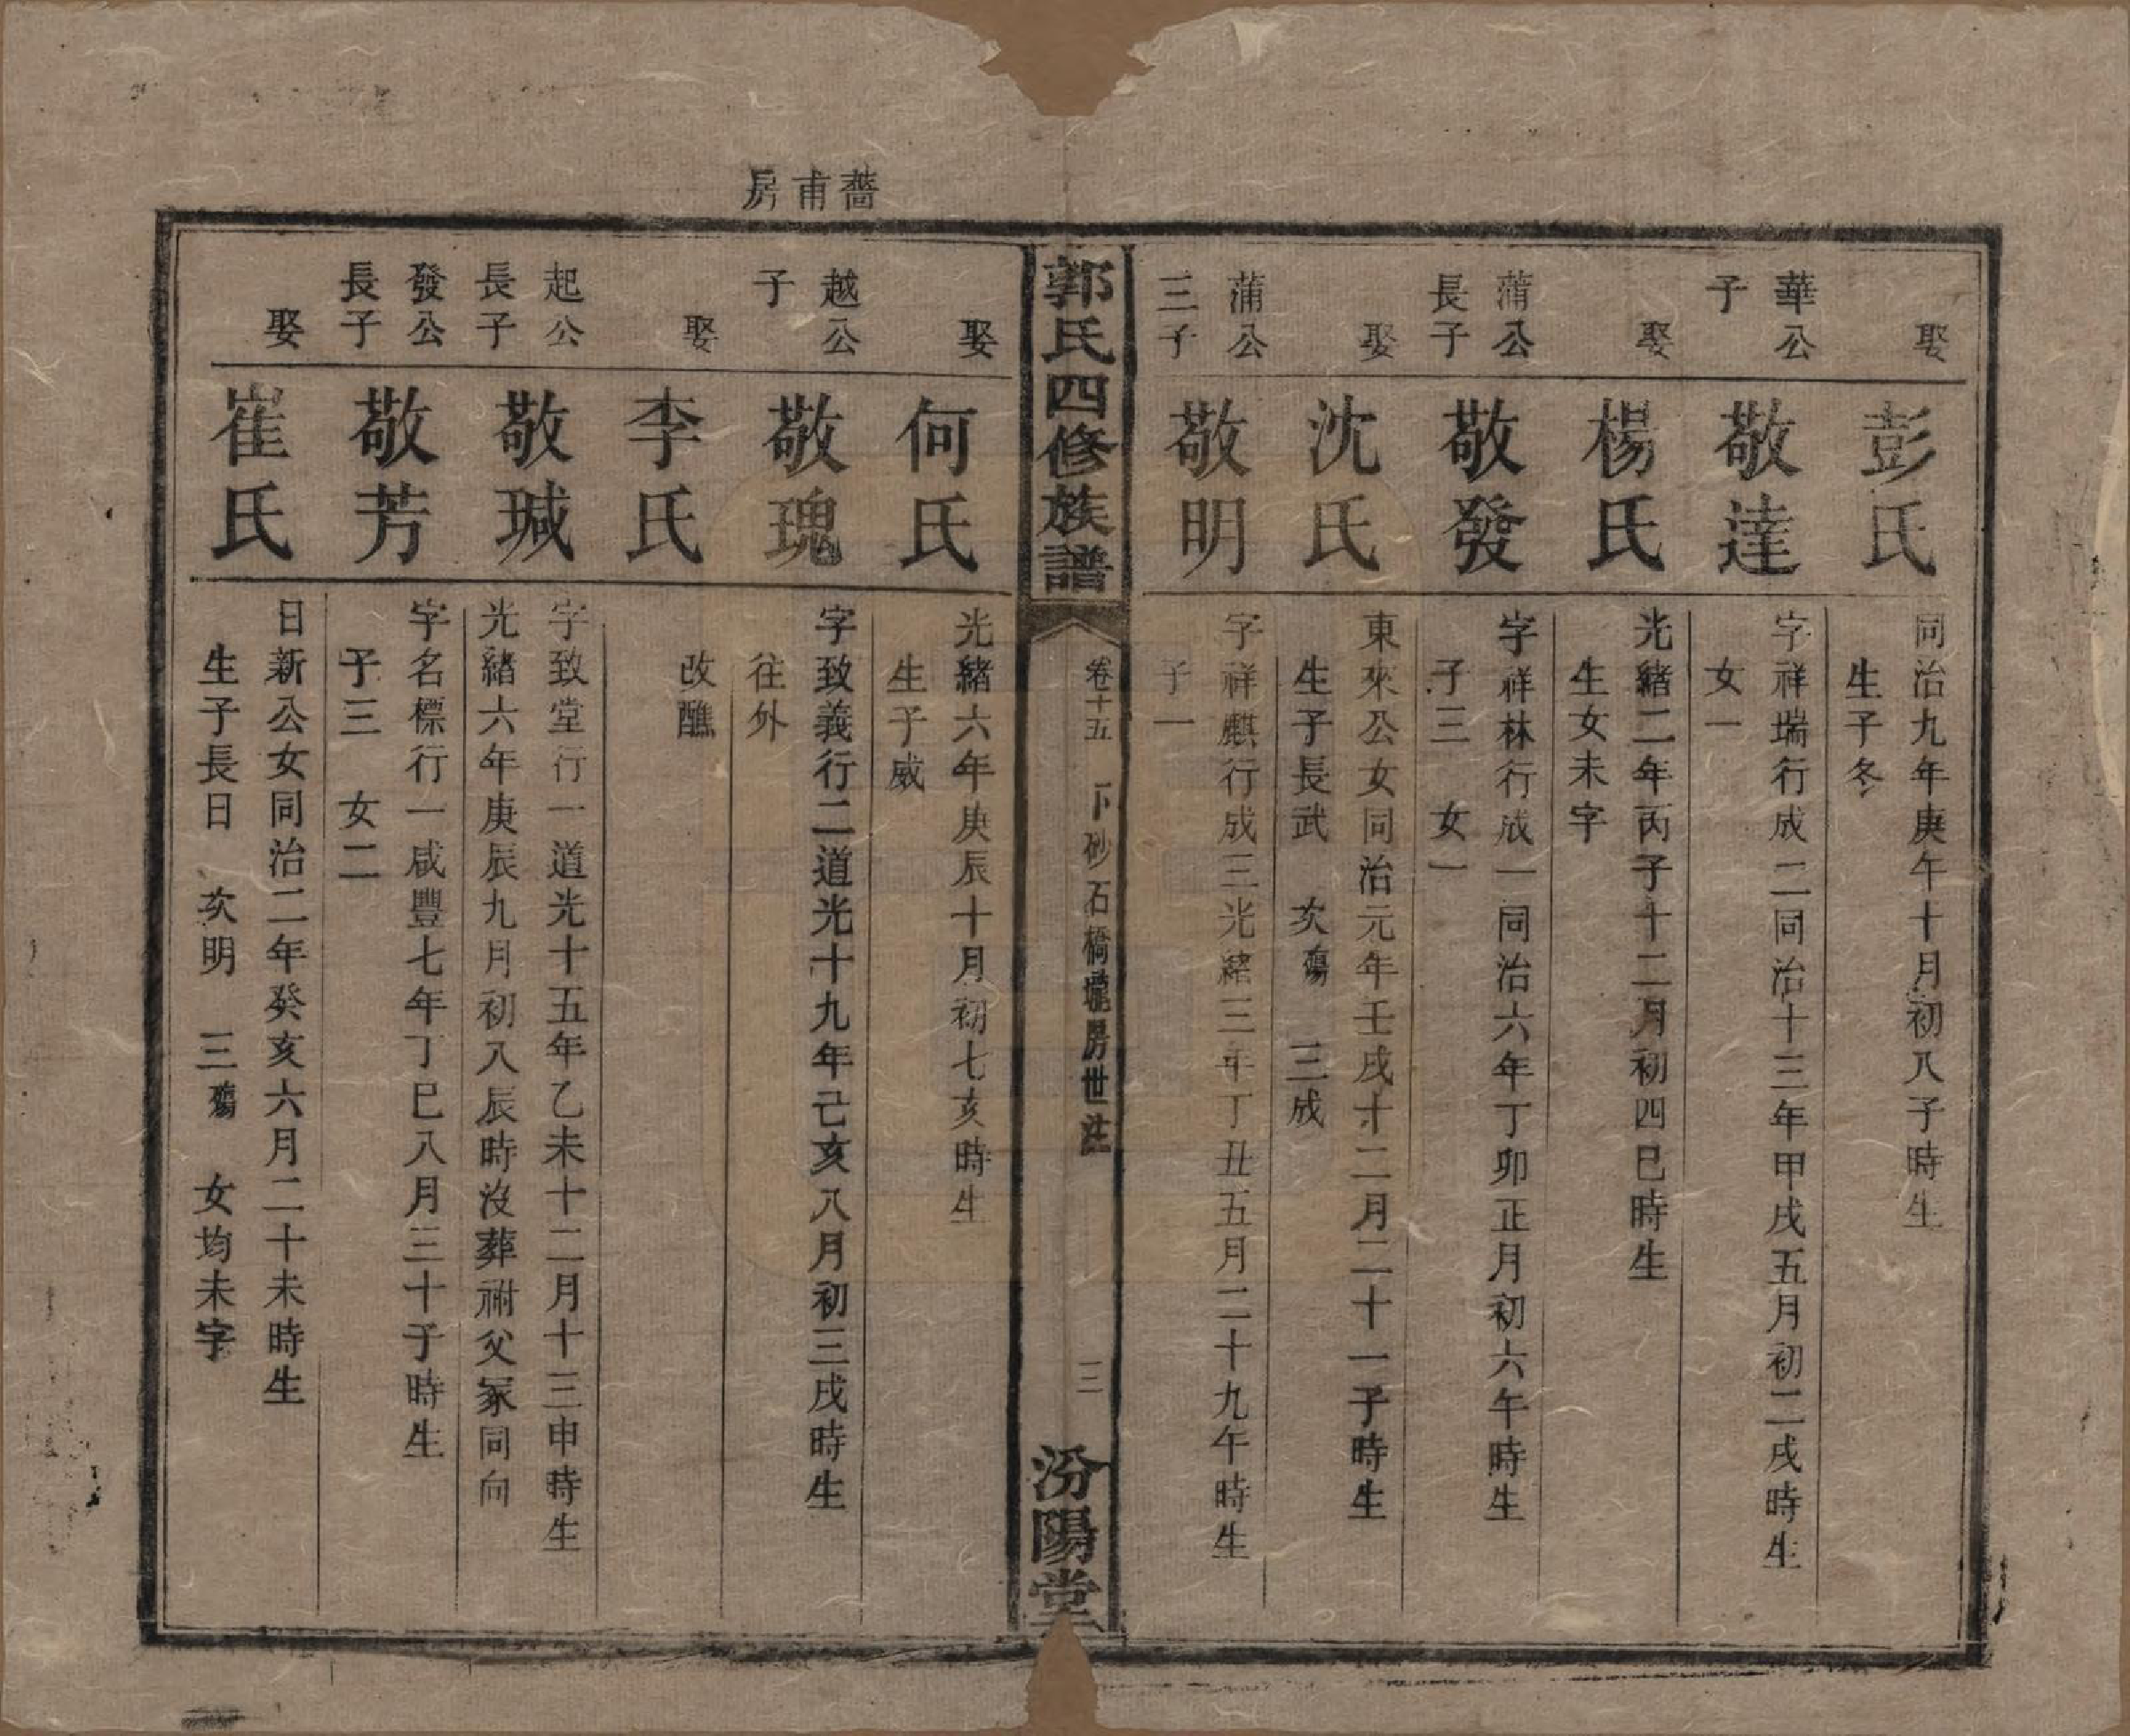 娶
彭氏
同治九年庚午十月初八子時生
生子冬
華公
子
敬達
字祥瑞行成二同治十三年甲戌五月初二戌時生
女一
娶
楊氏
光緒二年丙子十二月初四巳時生
生女未字
蒲公
長子
敬發
字祥林行成一同治六年丁卯正月初六午時生
子三 女一
娶
沈氏
東來公女同治元年壬戌十二月二十一子時生
生子長武 次殤 三成
蒲公
三子
敬明
字祥麒行成三光緒三年丁丑五月二十九午時生
子一
郭氏四修族譜
卷十五 下砂石橋壠房世註
三
汾陽堂
薔甫房
娶
何氏
光緒六年庚辰十月初七亥時生
生子威
越公
子
敬瑰
字致義行二道光十九年己亥八月初三戌時生
往外
娶
李氏
改醮
起公
長子
敬瑊
字致堂行一道光十五年乙未十二月十三申時生
光緒六年庚辰九月初八辰時沒葬祔父冢同向
發公
長子
敬芳
字名標行一咸豐七年丁巳八月三十子時生
子三 女二
娶
崔氏
日新公女同治二年癸亥六月二十未時生
生子長日 次明 三殤 女均未字